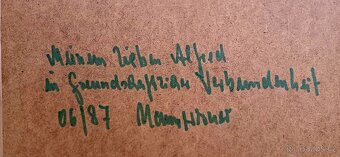 Meinem lieben Alfred
in freundschaftlicher Verbundenheit
06/87